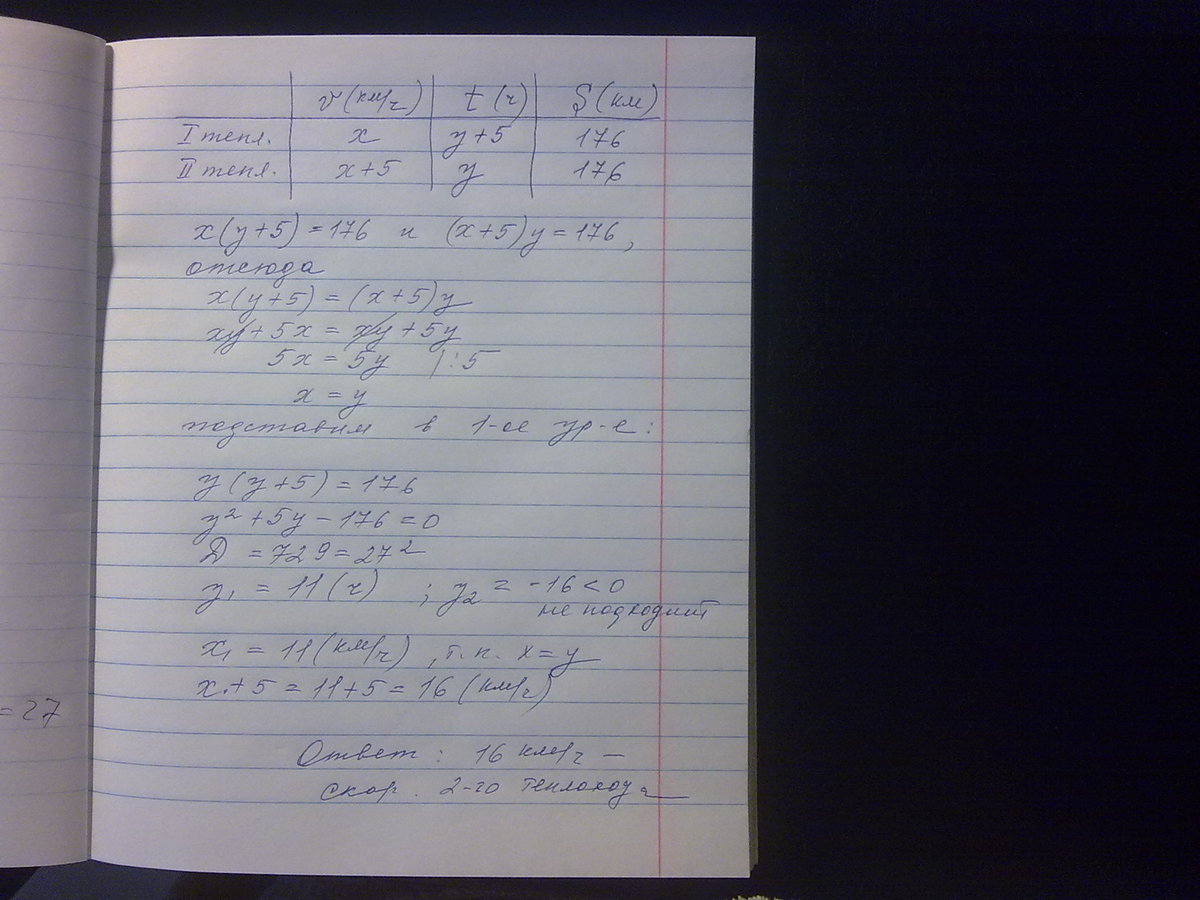 v (км/ч) t (ч) S (км)
I тепл. x y+5 176
II тепл. x+5 y 176
x(y+5)=176 и (x+5)y=176,
отсюда
x(y+5)=(x+5)y
xy+5x=xy+5y
5x=5y |:5
x=y
подставим в 1-ое ур-е:
y(y+5)=176
y²+5y-176=0
D=729=27²
y₁=11(ч) ; y₂=-16<0
не подходит
x₁=11(км/ч), т.к. x=y
x+5=11+5=16(км/ч)
=27
Ответ: 16 км/ч —
скор. 2-го теплохода